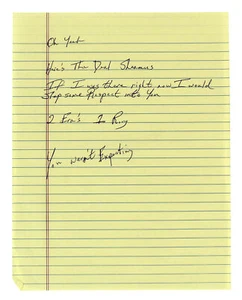 Oh Yeah
Here's The Deal Sheamus
If I was there right now I would
slap some Respect into You
2 Era's 1 Ring
You weren't Expecting